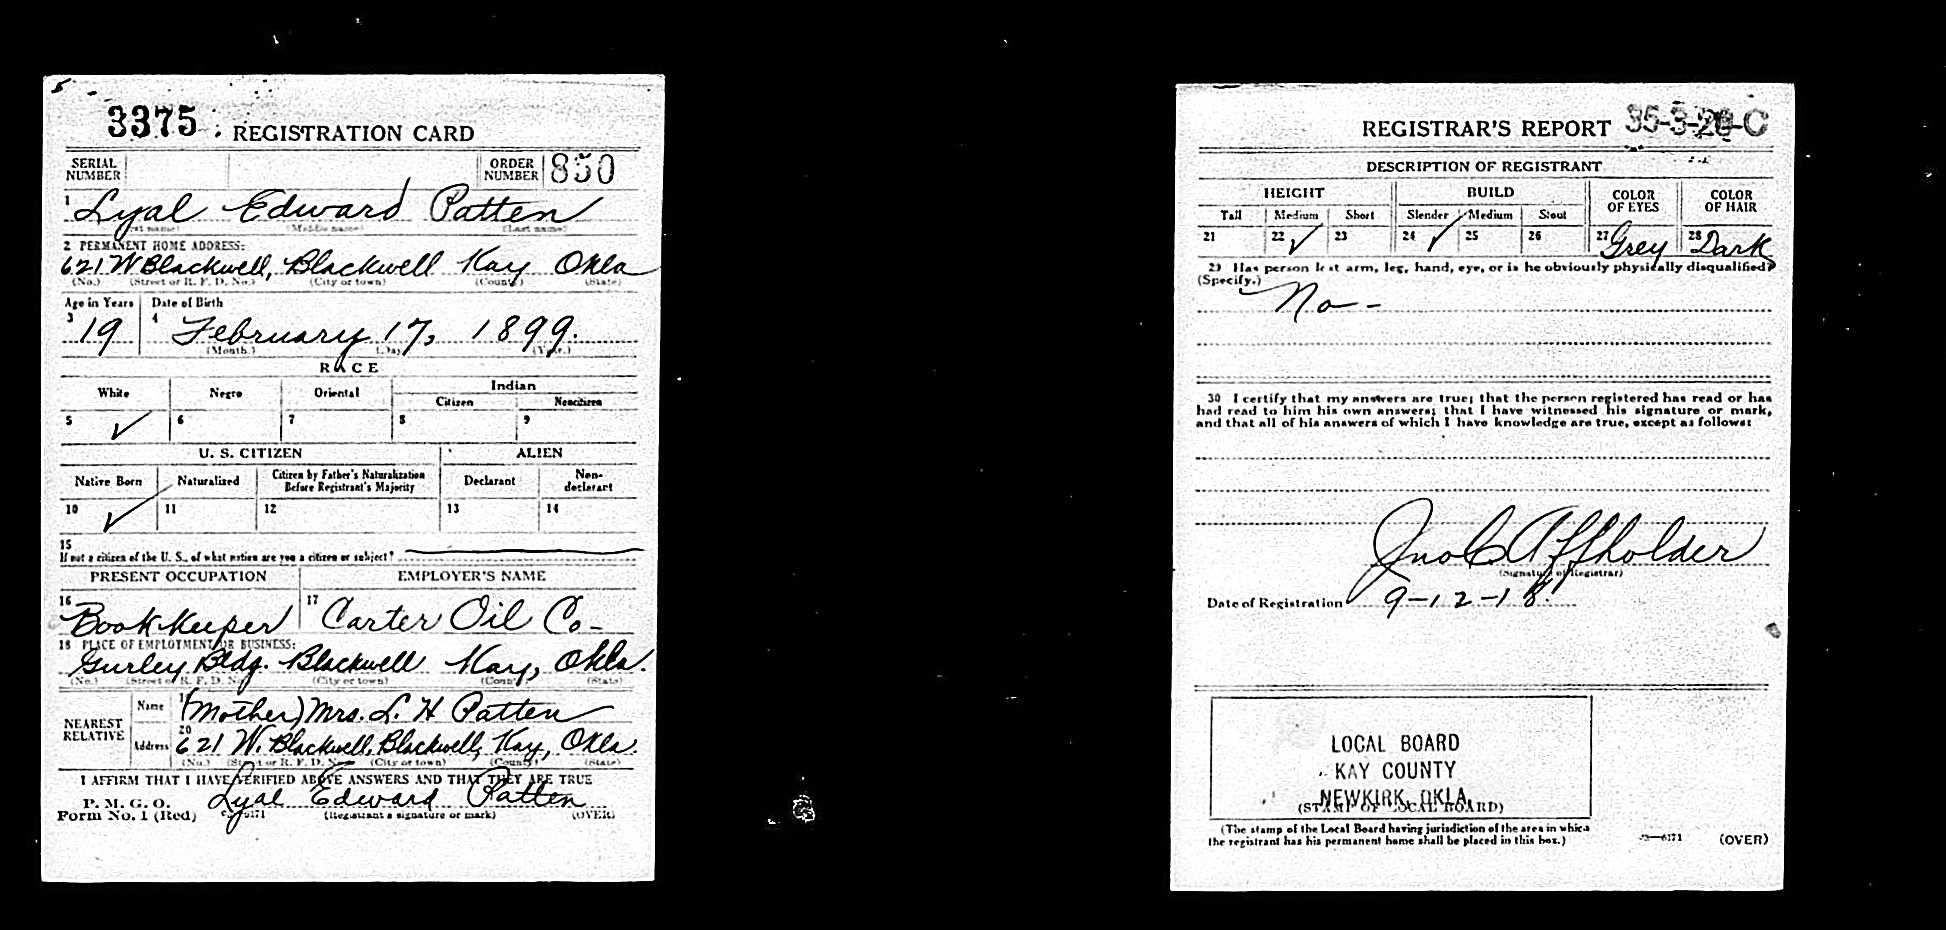 3375
REGISTRATION CARD
SERIAL NUMBER
ORDER NUMBER 850
1 Lyal Edward Patten
(First name) (Middle name) (Last name)
2 PERMANENT HOME ADDRESS:
621 W Blackwell, Blackwell Kay Okla
(No.) (Street or R. F. D. No.) (City or town) (County) (State)
Age in Years Date of Birth
3 19 4 February 17, 1899.
(Month.) (Day.) (Year.)
RACE
White Negro Oriental Indian
Citizen Noncitizen
5 ✓ 6 7 8 9
U. S. CITIZEN ALIEN
Native Born Naturalized Citizen by Father's Naturalization Before Registrant's Majority Declarant Non-declarant
10 ✓ 11 12 13 14
15
If not a citizen of the U. S., of what nation are you a citizen or subject?
PRESENT OCCUPATION EMPLOYER'S NAME
16 Book Keeper 17 Carter Oil Co-
18 PLACE OF EMPLOYMENT OR BUSINESS:
Gurley Bldg. Blackwell Kay, Okla.
(No.) (Street or R. F. D. No.) (City or town) (County) (State)
NEAREST RELATIVE
Name (Mother) Mrs. L. H Patten
Address 20 621 W. Blackwell, Blackwell, Kay, Okla.
(No.) (Street or R. F. D. No.) (City or town) (County) (State)
I AFFIRM THAT I HAVE VERIFIED ABOVE ANSWERS AND THAT THEY ARE TRUE
P. M. G. O.
Form No. 1 (Red) Lyal Edward Patten
(Registrant's signature or mark) (OVER)
REGISTRAR'S REPORT 35-3-20-C
DESCRIPTION OF REGISTRANT
HEIGHT BUILD COLOR OF EYES COLOR OF HAIR
Tall Medium Short Slender Medium Stout
21 22 ✓ 23 24 ✓ 25 26 27 Grey 28 Dark
29 Has person lost arm, leg, hand, eye, or is he obviously physically disqualified?
(Specify.)
No-
30 I certify that my answers are true; that the person registered has read or has
had read to him his own answers; that I have witnessed his signature or mark,
and that all of his answers of which I have knowledge are true, except as follows:
Jno C Affholder
(Signature of Registrar)
Date of Registration 9-12-18.
LOCAL BOARD
KAY COUNTY
NEWKIRK, OKLA.
(STAMP OF LOCAL BOARD)
(The stamp of the Local Board having jurisdiction of the area in which
the registrant has his permanent home shall be placed in this box.)
(OVER)